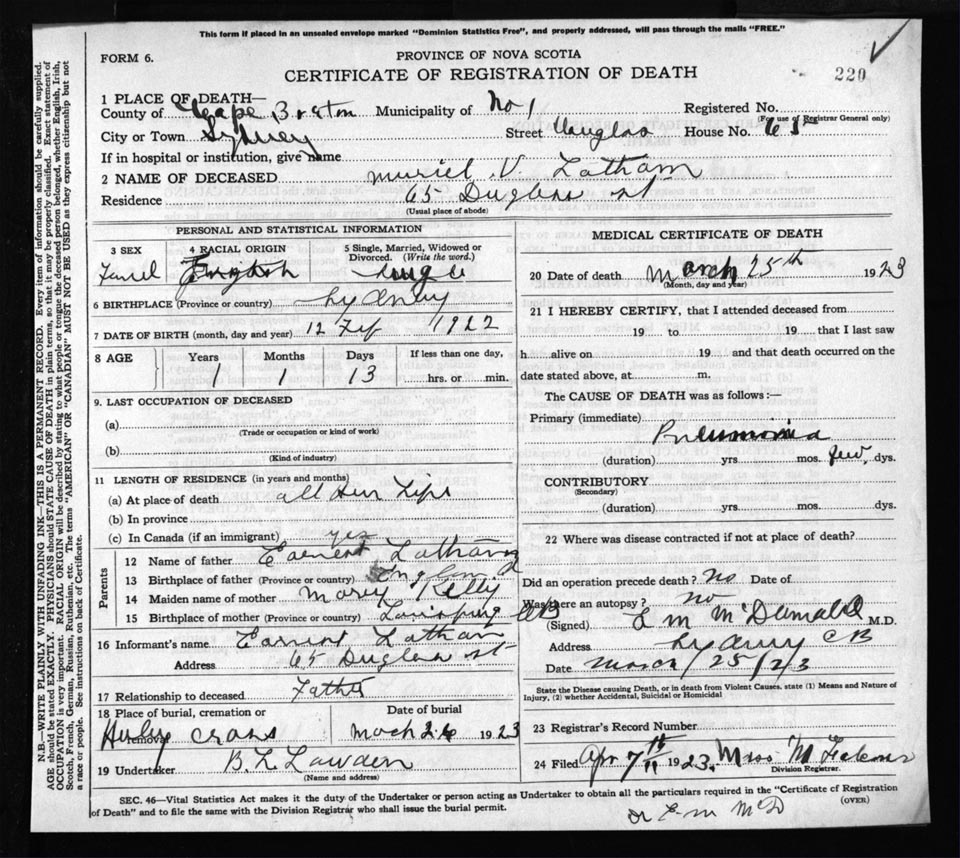 This form if placed in an unsealed envelope marked "Dominion Statistics Free", and properly addressed, will pass through the mails "FREE."
FORM 6.
PROVINCE OF NOVA SCOTIA
CERTIFICATE OF REGISTRATION OF DEATH
220
1 PLACE OF DEATH—
County of Cape Breton Municipality of No 1 Registered No.
(For use of Registrar General only)
City or Town Sydney Street Duglas House No. 65
If in hospital or institution, give name
2 NAME OF DECEASED Muriel V. Latham
Residence 65 Duglas st
(Usual place of abode)
PERSONAL AND STATISTICAL INFORMATION
3 SEX 4 RACIAL ORIGIN 5 Single, Married, Widowed or Divorced. (Write the word.)
Femel English single
6 BIRTHPLACE (Province or country) Sydney
7 DATE OF BIRTH (month, day and year) 12 Feb 1922
8 AGE Years Months Days If less than one day,
1 1 13 hrs. or min.
9. LAST OCCUPATION OF DECEASED
(a)
(Trade or occupation or kind of work)
(b)
(Kind of industry)
11 LENGTH OF RESIDENCE (in years and months)
(a) At place of death all her Life
(b) In province
(c) In Canada (if an immigrant) yes
Parents
12 Name of father Earnest Latham
13 Birthplace of father (Province or country) England
14 Maiden name of mother Mary Kelly
15 Birthplace of mother (Province or country) Louisburg CB
16 Informant's name Earnest Latham
Address 65 Duglas st
17 Relationship to deceased Father
18 Place of burial, cremation or removal Date of burial
March 26 1923
19 Undertaker B. L.
(Name and address)
MEDICAL CERTIFICATE OF DEATH
20 Date of death March 25th 1923
(Month, day and year)
21 I HEREBY CERTIFY, that I attended deceased from
19 to 19 that I last saw
h alive on 19 and that death occurred on the
date stated above, at m.
The CAUSE OF DEATH was as follows:—
Primary (immediate) Pneumonia
(duration) yrs. mos. few dys.
CONTRIBUTORY
(Secondary)
(duration) yrs. mos. dys.
22 Where was disease contracted if not at place of death?
Did an operation precede death? no Date of
Was there an autopsy? no
(Signed) L M McDonald M.D.
Address Sydney CB
Date March/25/23
State the Disease causing Death, or in death from Violent Causes, state (1) Means and Nature of
Injury, (2) whether Accidental, Suicidal or Homicidal
23 Registrar's Record Number
24 Filed Apr 7th 1923. Miss M
Division Registrar.
SEC. 46—Vital Statistics Act makes it the duty of the Undertaker or person acting as Undertaker to obtain all the particulars required in the "Certificate of Registration
of Death" and to file the same with the Division Registrar who shall issue the burial permit.
(OVER)
N.B.—WRITE PLAINLY WITH UNFADING INK—THIS IS A PERMANENT RECORD. Every item of information should be carefully supplied.
AGE should be stated EXACTLY. PHYSICIANS should STATE CAUSE OF DEATH in plain terms, so that it may be properly classified. Exact statement of
OCCUPATION is very important. RACIAL ORIGIN will be described by stating to what people or tongue the deceased person belonged, whether English, Irish,
Scotch, French, German, Russian, Ruthenian, etc. The terms "AMERICAN" OR "CANADIAN" MUST NOT BE USED as they express citizenship but not
a race or people. See instructions on back of Certificate.